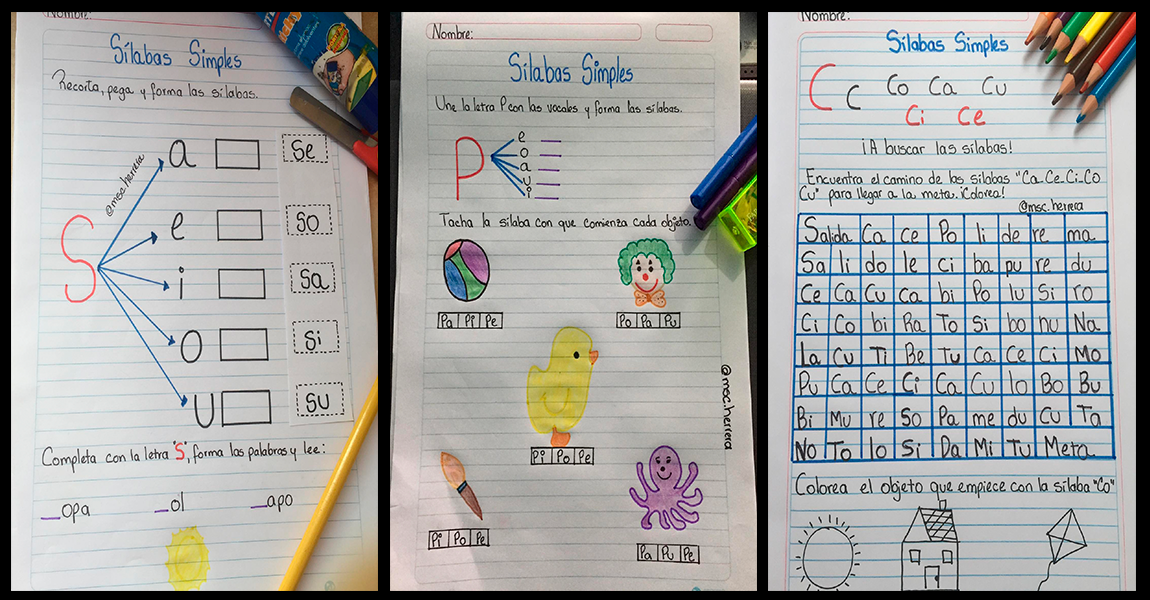 Nombre:
Sílabas Simples
Recorta, pega y forma las sílabas.
@msc.herrera
S
a
e
i
o
u
Se
So
Sa
Si
Su
Completa con la letra "S", forma las palabras y lee:
_opa _ol _apo
Nombre:
Sílabas Simples
Une la letra P con las vocales y forma las sílabas.
P
e
o
a
u
i
Tacha la sílaba con que comienza cada objeto.
Pa Pi Pe
Po Pa Pu
@msc.herrera
Pi Po Pe
Pi Po Pe
Pa Pu Pe
Nombre:
Sílabas Simples
C c Co Ca Cu
Ci Ce
¡A buscar las sílabas!
Encuentra el camino de las sílabas "Ca-Ce-Ci-Co
Cu" para llegar a la meta. ¡Colorea!
@msc.herrera
Salida Ca ce Po li de re ma
Sa li do le ci ba pu re du
Ce Ca Cu ca bi Po lu Si ro
Ci Co bi Ra To Si bo nu Na
La Cu Ti Be Tu Ca Ce Ci Mo
Pu Ca Ce Ci Ca Cu lo Bo Bu
Bi Mu re So Pa me du Cu Ta
No To lo Si Da Mi Tu Meta
Colorea el objeto que empiece con la sílaba "Co"